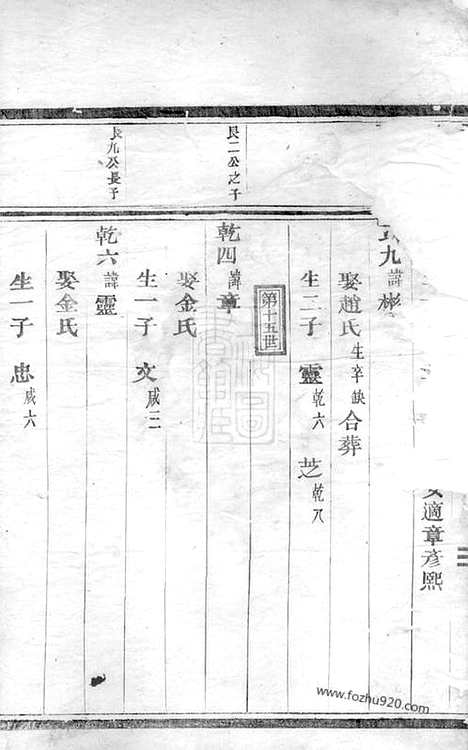 適章彥熙
九諱彬
娶趙氏生卒缺合葬
生二子靈乾六芝乾八
第十五世
艮二公之子
乾四諱章
娶金氏
生一子文咸三
艮九公長子
乾六諱靈
娶金氏
生一子忠咸六
www.fozhu920.com